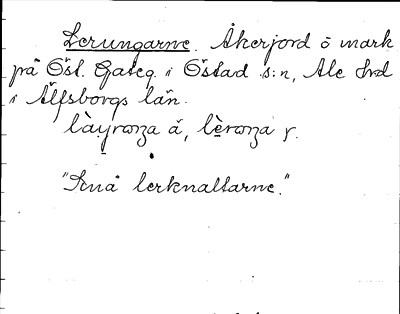 Lerungarne. Åkerjord o mark
på Öst. Gateg. i Östad s:n, Ale hd
i Älfsborgs län.
"Små lerknallarne."